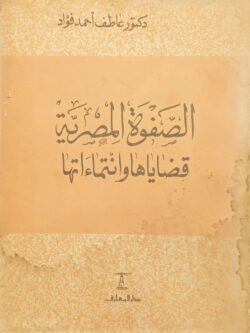 دكتور عاطف أحمد فؤاد
الصفوة المصرية
قضاياها وانتماءاتها
دار المعارف